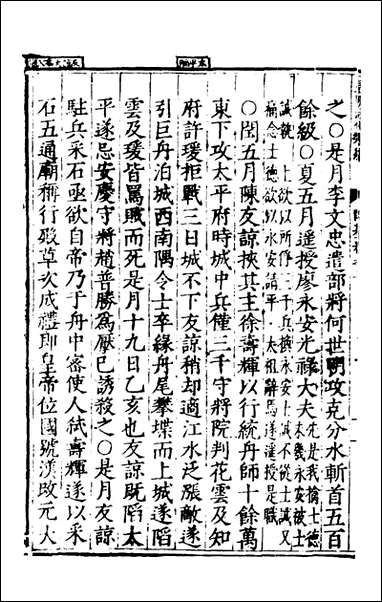 之○是月李文忠遣部將何世明攻克分水斬首五百
餘級○夏五月遥授廖永安光祿大夫先是我擒士德未幾永安被士
誠執上欲以所俘三千兵換永安士誠不從士誠又
痛念士德欲以永安請平太祖辭焉遂遥授是職
○閏五月陳友諒挾其主徐壽輝以行統舟師十餘萬
東下攻太平府時城中兵僅三千守將院判花雲及知
府許瑗拒戰三日城不下友諒稍却適江水泛漲敵遂
引巨舟泊城西南隅令士卒緣舟尾攀堞而上城遂陷
雲及瑗皆罵賊而死是月十九日乙亥也友諒既陷太
平遂忌安慶守將趙普勝爲厭已誘殺之○是月友諒
駐兵采石亟欲自帝乃于舟中密使人弑壽輝遂以采
石五通廟稱行殿草次成禮即皇帝位國號漢改元大